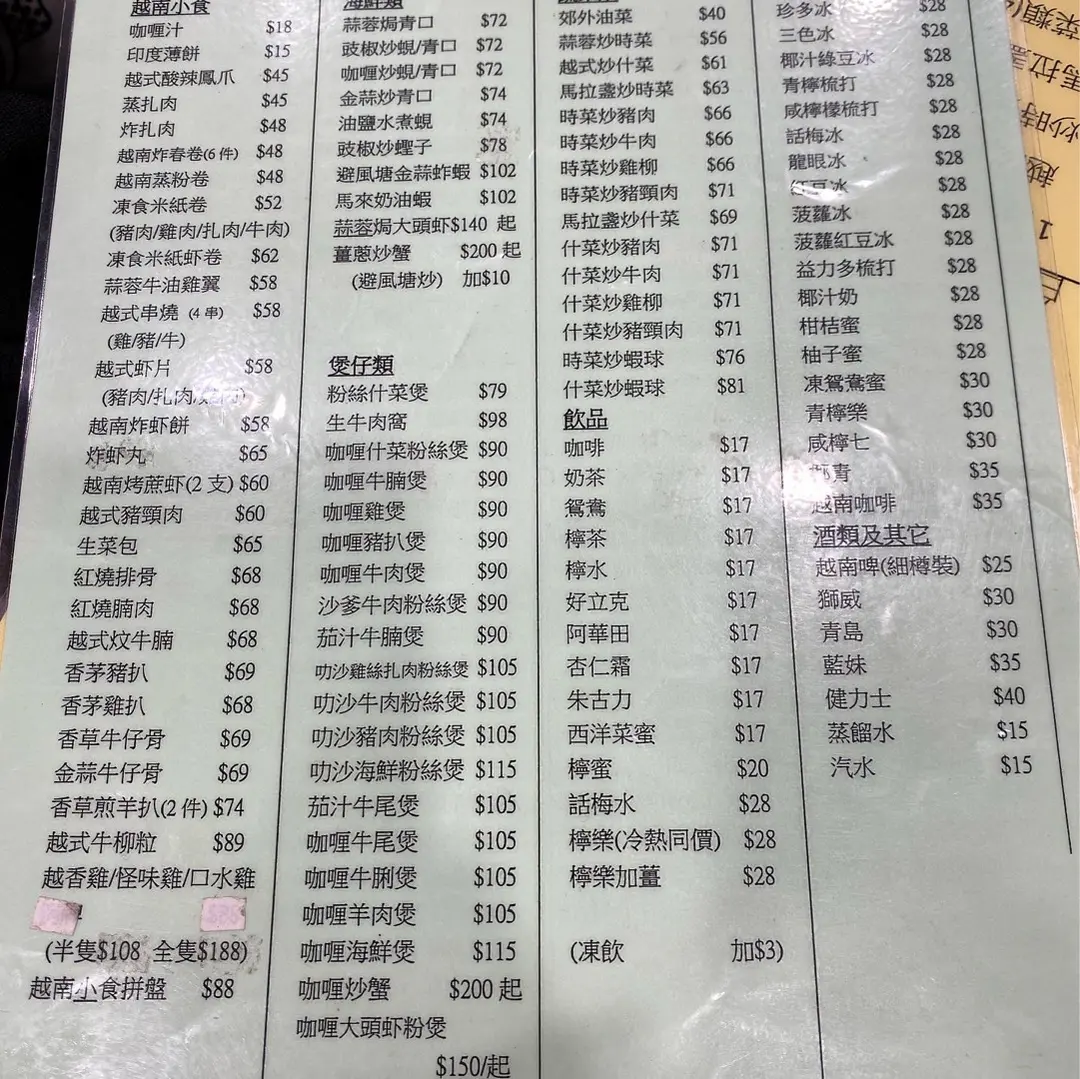 越南小食
咖喱汁 $18
印度薄餅 $15
越式酸辣鳳爪 $45
蒸扎肉 $45
炸扎肉 $48
越南炸春卷(6件) $48
越南蒸粉卷 $48
凍食米紙卷 $52
(豬肉/雞肉/扎肉/牛肉)
凍食米紙虾卷 $62
蒜蓉牛油雞翼 $58
越式串燒 (4串) $58
(雞/豬/牛)
越式虾片 $58
(豬肉/扎肉/
越南炸虾餅 $58
炸虾丸 $65
越南烤蔗虾(2支) $60
越式豬頸肉 $60
生菜包 $65
紅燒排骨 $68
紅燒腩肉 $68
越式炆牛腩 $68
香茅豬扒 $69
香茅雞扒 $68
香草牛仔骨 $69
金蒜牛仔骨 $69
香草煎羊扒(2件) $74
越式牛柳粒 $89
越香雞/怪味雞/口水雞
(半隻$108 全隻$188)
越南小食拼盤 $88
海鮮類
蒜蓉焗青口 $72
豉椒炒蜆/青口 $72
咖喱炒蜆/青口 $72
金蒜炒青口 $74
油鹽水煮蜆 $74
豉椒炒蟶子 $78
避風塘金蒜蚱蝦 $102
馬來奶油蝦 $102
蒜蓉焗大頭虾$140 起
薑蔥炒蟹 $200 起
(避風塘炒) 加$10
煲仔類
粉絲什菜煲 $79
生牛肉窩 $98
咖喱什菜粉絲煲 $90
咖喱牛腩煲 $90
咖喱雞煲 $90
咖喱豬扒煲 $90
咖喱牛肉煲 $90
沙爹牛肉粉絲煲 $90
茄汁牛腩煲 $90
叻沙雞絲扎肉粉絲煲 $105
叻沙牛肉粉絲煲 $105
叻沙豬肉粉絲煲 $105
叻沙海鮮粉絲煲 $115
茄汁牛尾煲 $105
咖喱牛尾煲 $105
咖喱牛脷煲 $105
咖喱羊肉煲 $105
咖喱海鮮煲 $115
咖喱炒蟹 $200 起
咖喱大頭虾粉煲
$150/起
郊外油菜 $40
蒜蓉炒時菜 $56
越式炒什菜 $61
馬拉盞炒時菜 $63
時菜炒豬肉 $66
時菜炒牛肉 $66
時菜炒雞柳 $66
時菜炒豬頸肉 $71
馬拉盞炒什菜 $69
什菜炒豬肉 $71
什菜炒牛肉 $71
什菜炒雞柳 $71
什菜炒豬頸肉 $71
時菜炒蝦球 $76
什菜炒蝦球 $81
飲品
咖啡 $17
奶茶 $17
鴛鴦 $17
檸茶 $17
檸水 $17
好立克 $17
阿華田 $17
杏仁霜 $17
朱古力 $17
西洋菜蜜 $17
檸蜜 $20
話梅水 $28
檸樂(冷熱同價) $28
檸樂加薑 $28
(凍飲 加$3)
珍多冰 $28
三色冰 $28
椰汁綠豆冰 $28
青檸梳打 $28
咸檸檬梳打 $28
話梅冰 $28
龍眼冰 $28
紅豆冰 $28
菠蘿冰 $28
菠蘿紅豆冰 $28
益力多梳打 $28
椰汁奶 $28
柑桔蜜 $28
柚子蜜 $28
凍鴛鴦蜜 $30
青檸樂 $30
咸檸七 $30
青 $35
越南咖啡 $35
酒類及其它
越南啤(細樽裝) $25
獅威 $30
青島 $30
藍妹 $35
健力士 $40
蒸餾水 $15
汽水 $15